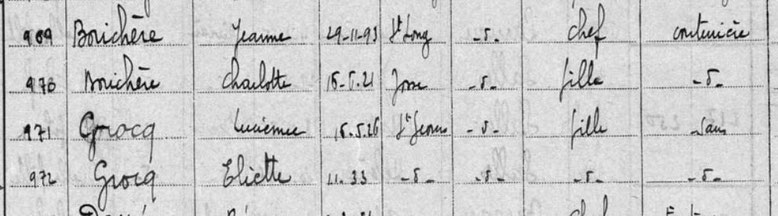 969 Bouichère Jeanne 29-11-93 St Long -d- chef couturière
970 Bouichère Charlotte 15-5-21 Josse -d- fille -d-
971 Grocq Lucienne 15.5.26 -d- fille sans
972 Grocq Eliette 11-33 -d- -d- -d- -d-
chef